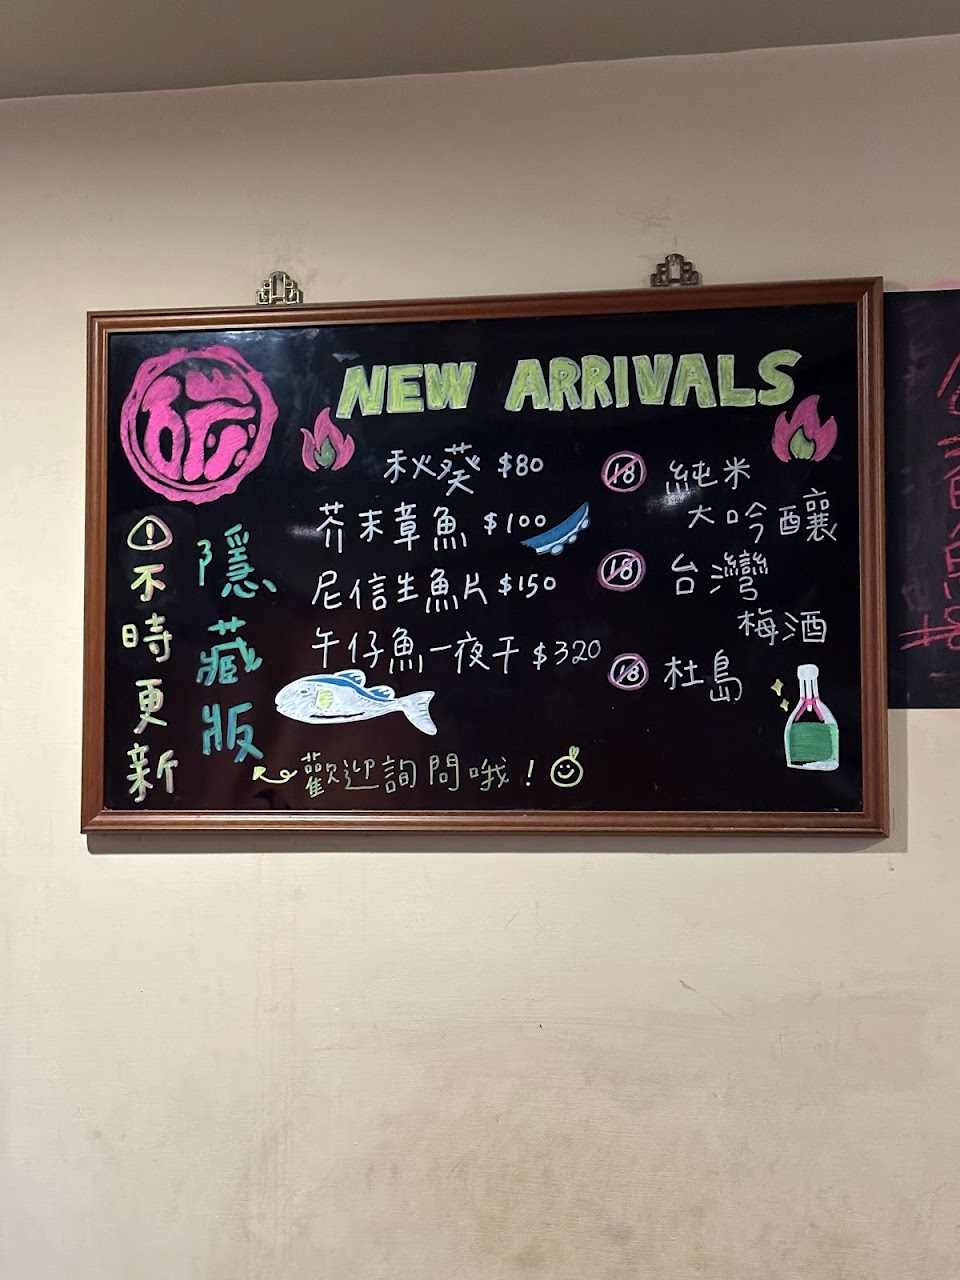 NEW ARRIVALS
秋葵 $80
芥末章魚 $100
尼信生魚片 $150
午仔魚一夜干 $320
18 純米
大吟釀
18 台灣
梅酒
18 杜島
不時更新
隱藏版
歡迎詢問哦!